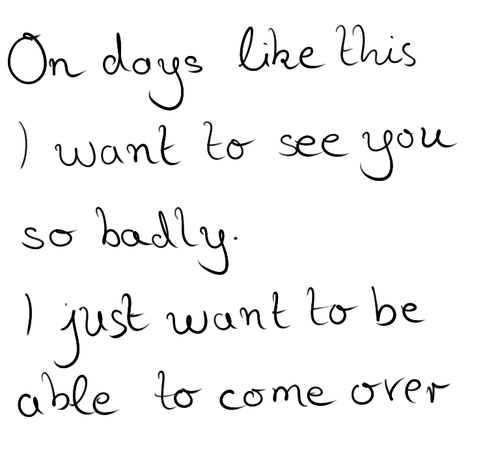 On days like this
I want to see you
so badly.
I just want to be
able to come over